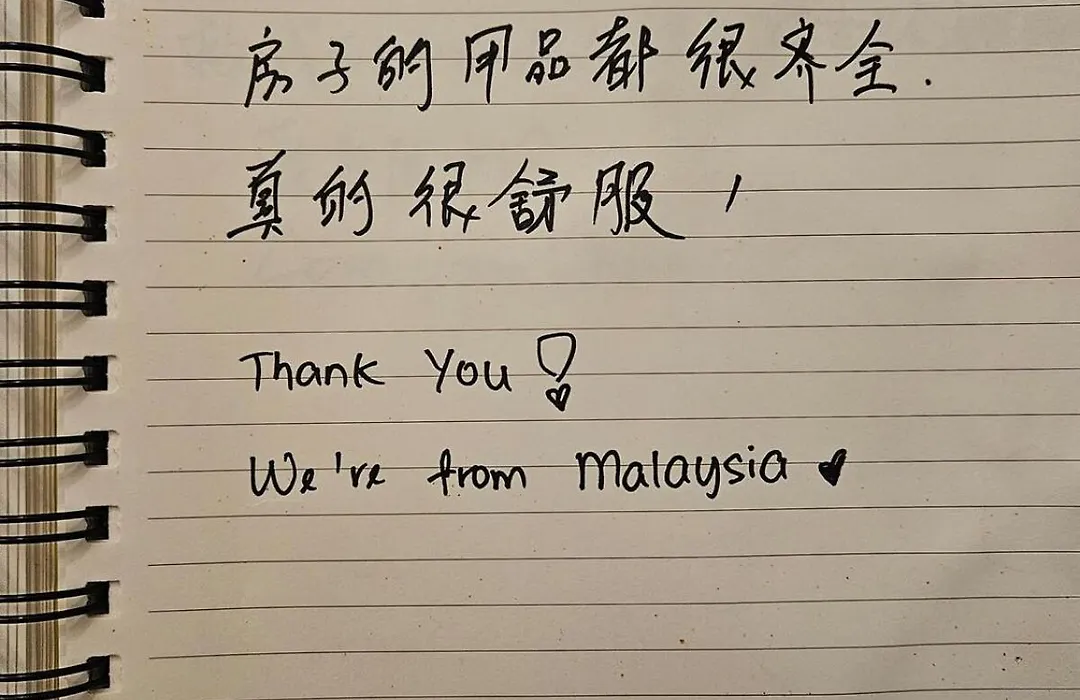 房子的用品都很齐全.
真的很舒服!
Thank You!
We're from Malaysia